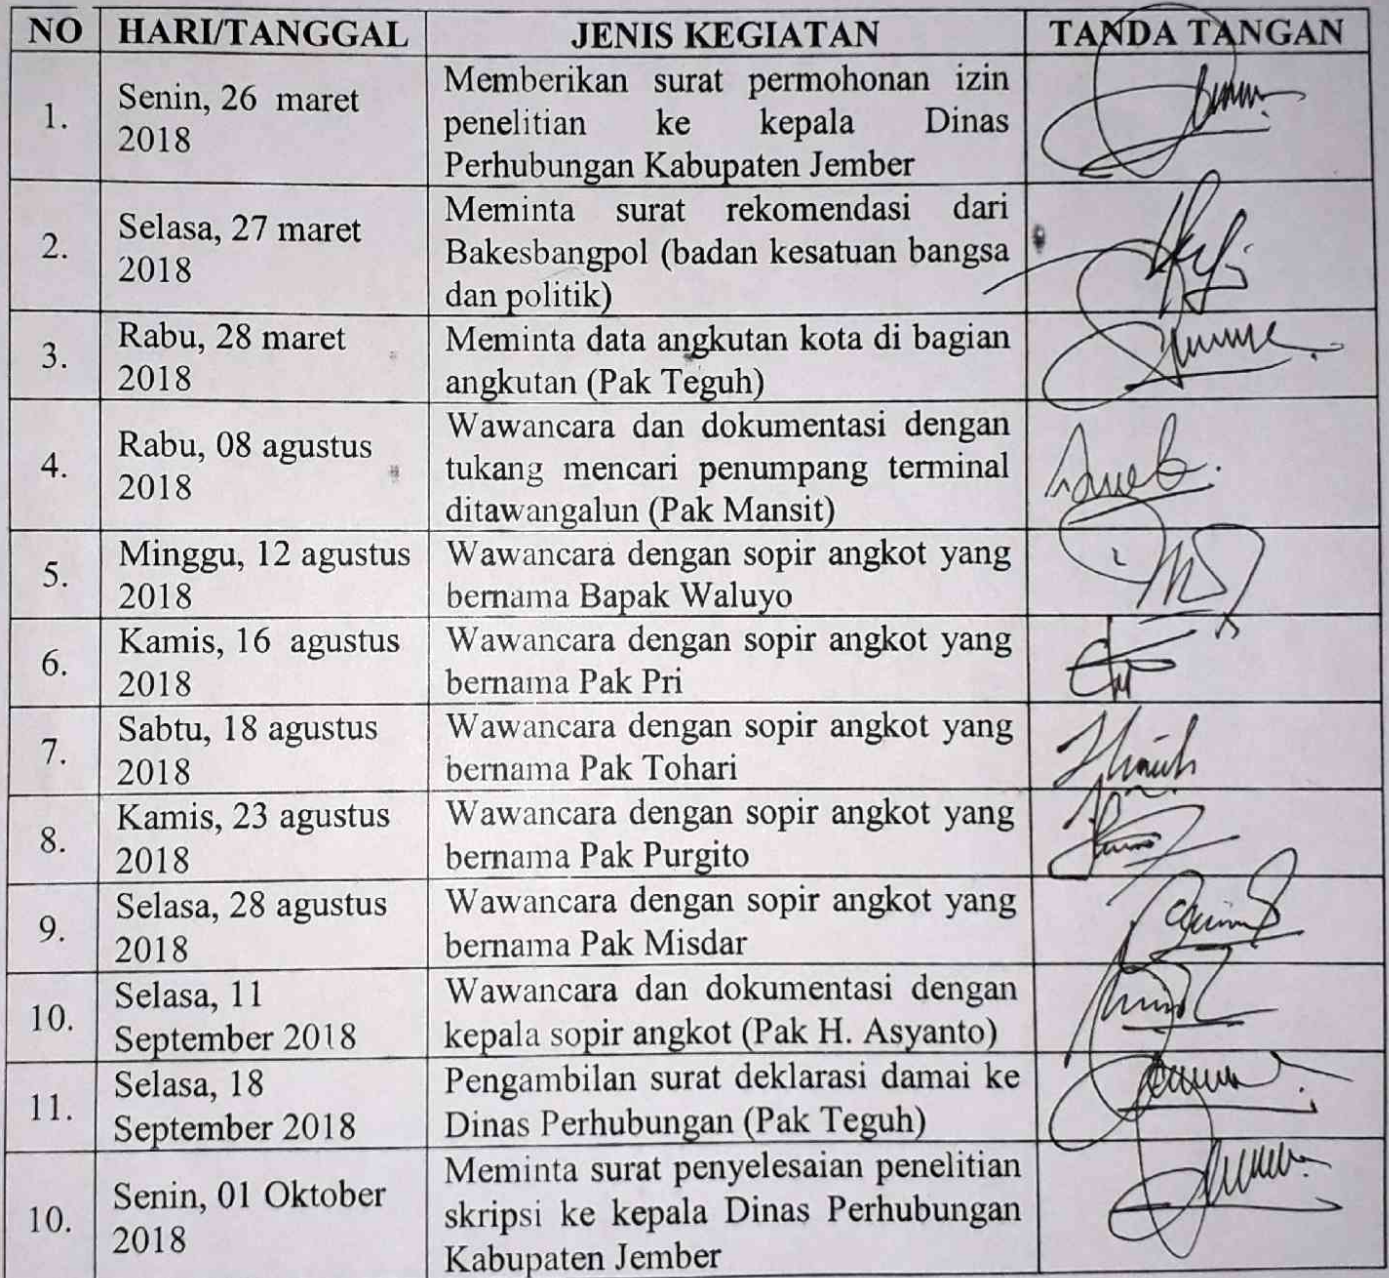 NO HARI/TANGGAL JENIS KEGIATAN TANDA TANGAN
1. Senin, 26 maret 2018
Memberikan surat permohonan izin
penelitian ke kepala Dinas
Perhubungan Kabupaten Jember
2. Selasa, 27 maret 2018
Meminta surat rekomendasi dari
Bakesbangpol (badan kesatuan bangsa
dan politik)
3. Rabu, 28 maret 2018
Meminta data angkutan kota di bagian
angkutan (Pak Teguh)
4. Rabu, 08 agustus 2018
Wawancara dan dokumentasi dengan
tukang mencari penumpang terminal
ditawangalun (Pak Mansit)
5. Minggu, 12 agustus 2018
Wawancara dengan sopir angkot yang
bernama Bapak Waluyo
6. Kamis, 16 agustus 2018
Wawancara dengan sopir angkot yang
bernama Pak Pri
7. Sabtu, 18 agustus 2018
Wawancara dengan sopir angkot yang
bernama Pak Tohari
8. Kamis, 23 agustus 2018
Wawancara dengan sopir angkot yang
bernama Pak Purgito
9. Selasa, 28 agustus 2018
Wawancara dengan sopir angkot yang
bernama Pak Misdar
10. Selasa, 11 September 2018
Wawancara dan dokumentasi dengan
kepala sopir angkot (Pak H. Asyanto)
11. Selasa, 18 September 2018
Pengambilan surat deklarasi damai ke
Dinas Perhubungan (Pak Teguh)
10. Senin, 01 Oktober 2018
Meminta surat penyelesaian penelitian
skripsi ke kepala Dinas Perhubungan
Kabupaten Jember